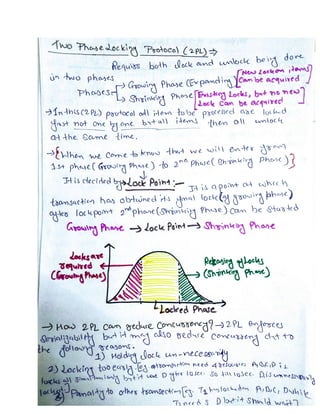 Two Phase Locking Protocol (2PL) ⇒
Require both lock and unlock being done
in two phases
Phases
→ Growing Phase (Expanding) [New Lock on items Can be acquired
→ Shrinking Phase [Existing Locks, but no new Lock can be acquired
→ In this (2PL) protocol all item to be processed are locked
first not one by one but all items then all unlock
at the same time.
→ {When we come to know that we will enter from
1st phase (Growing Phase) to 2nd Phase (Shrinking Phase)}
It is decided by → Lock Point :- It is a point at which
transaction has obtained its final lock (of growing phase)
after lock point 2nd phase (Shrinking Phase) can be started
Growing Phase → Lock Point → Shrinking Phase
Locks are
required
(Growing Phase)
Releasing of Locks
(Shrinking Phase)
Locked Phase
→ How 2PL can reduce Concurrency? → 2PL enforces
Serializability but it may also reduce concurrency due to
the following reasons.
1) Holding lock unnecessarily
2) Locking too early
Penality to other transaction